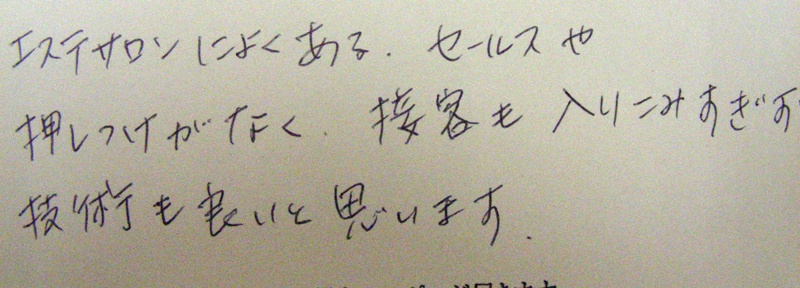 エステサロンによくある、セールスや
押しつけがなく、接客も入りこみすぎず
技術も良いと思います。